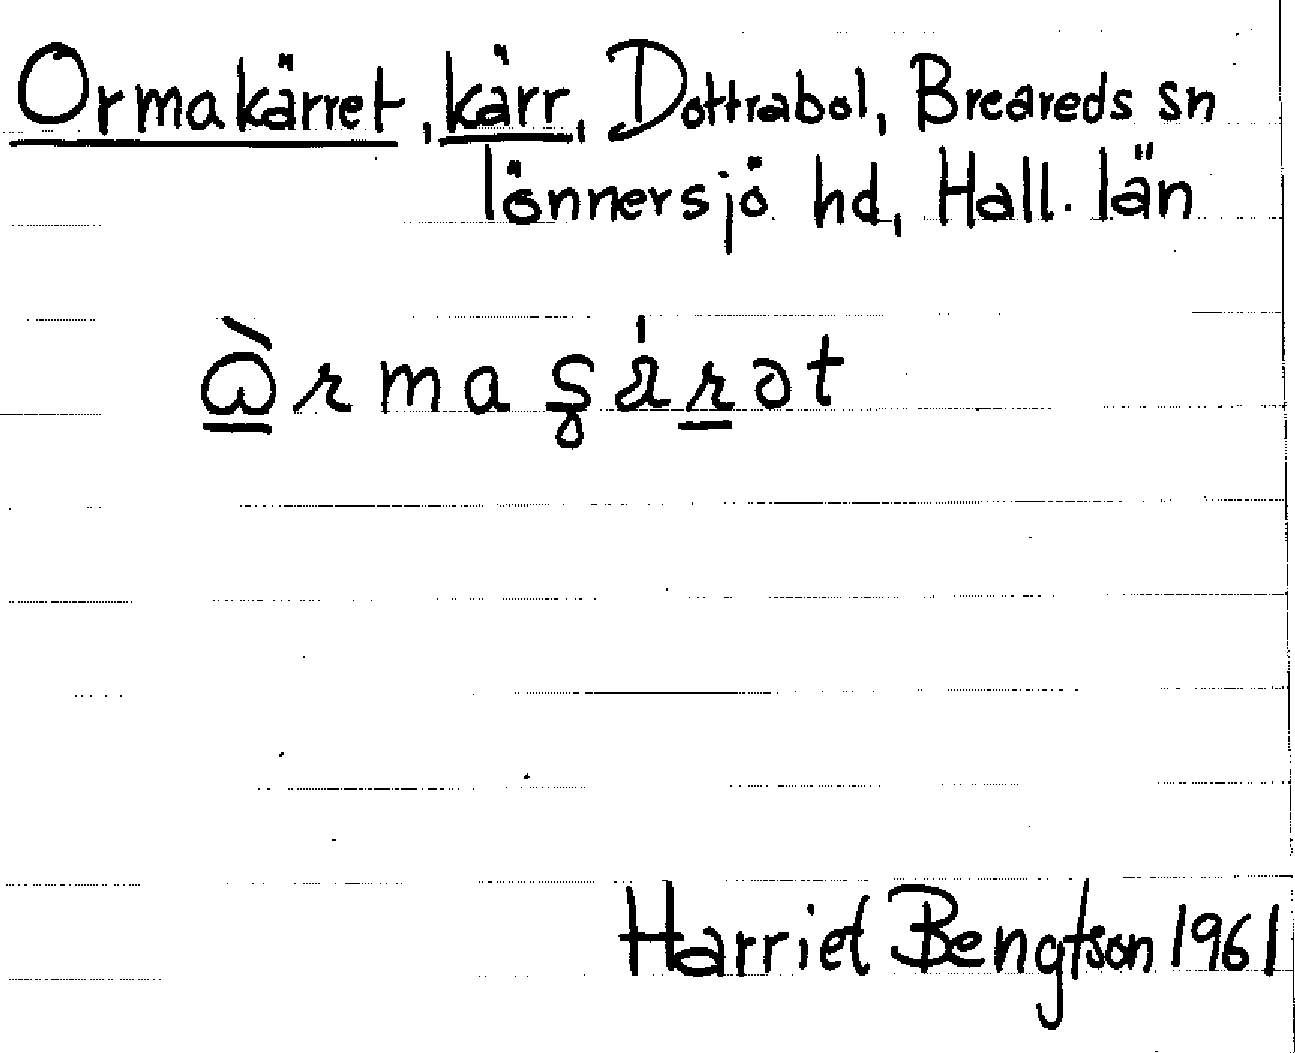 Ormakärret, kärr, Dottrabol, Breareds sn
lönnersjö hd, Hall. län
Harriet Bengtson 1961